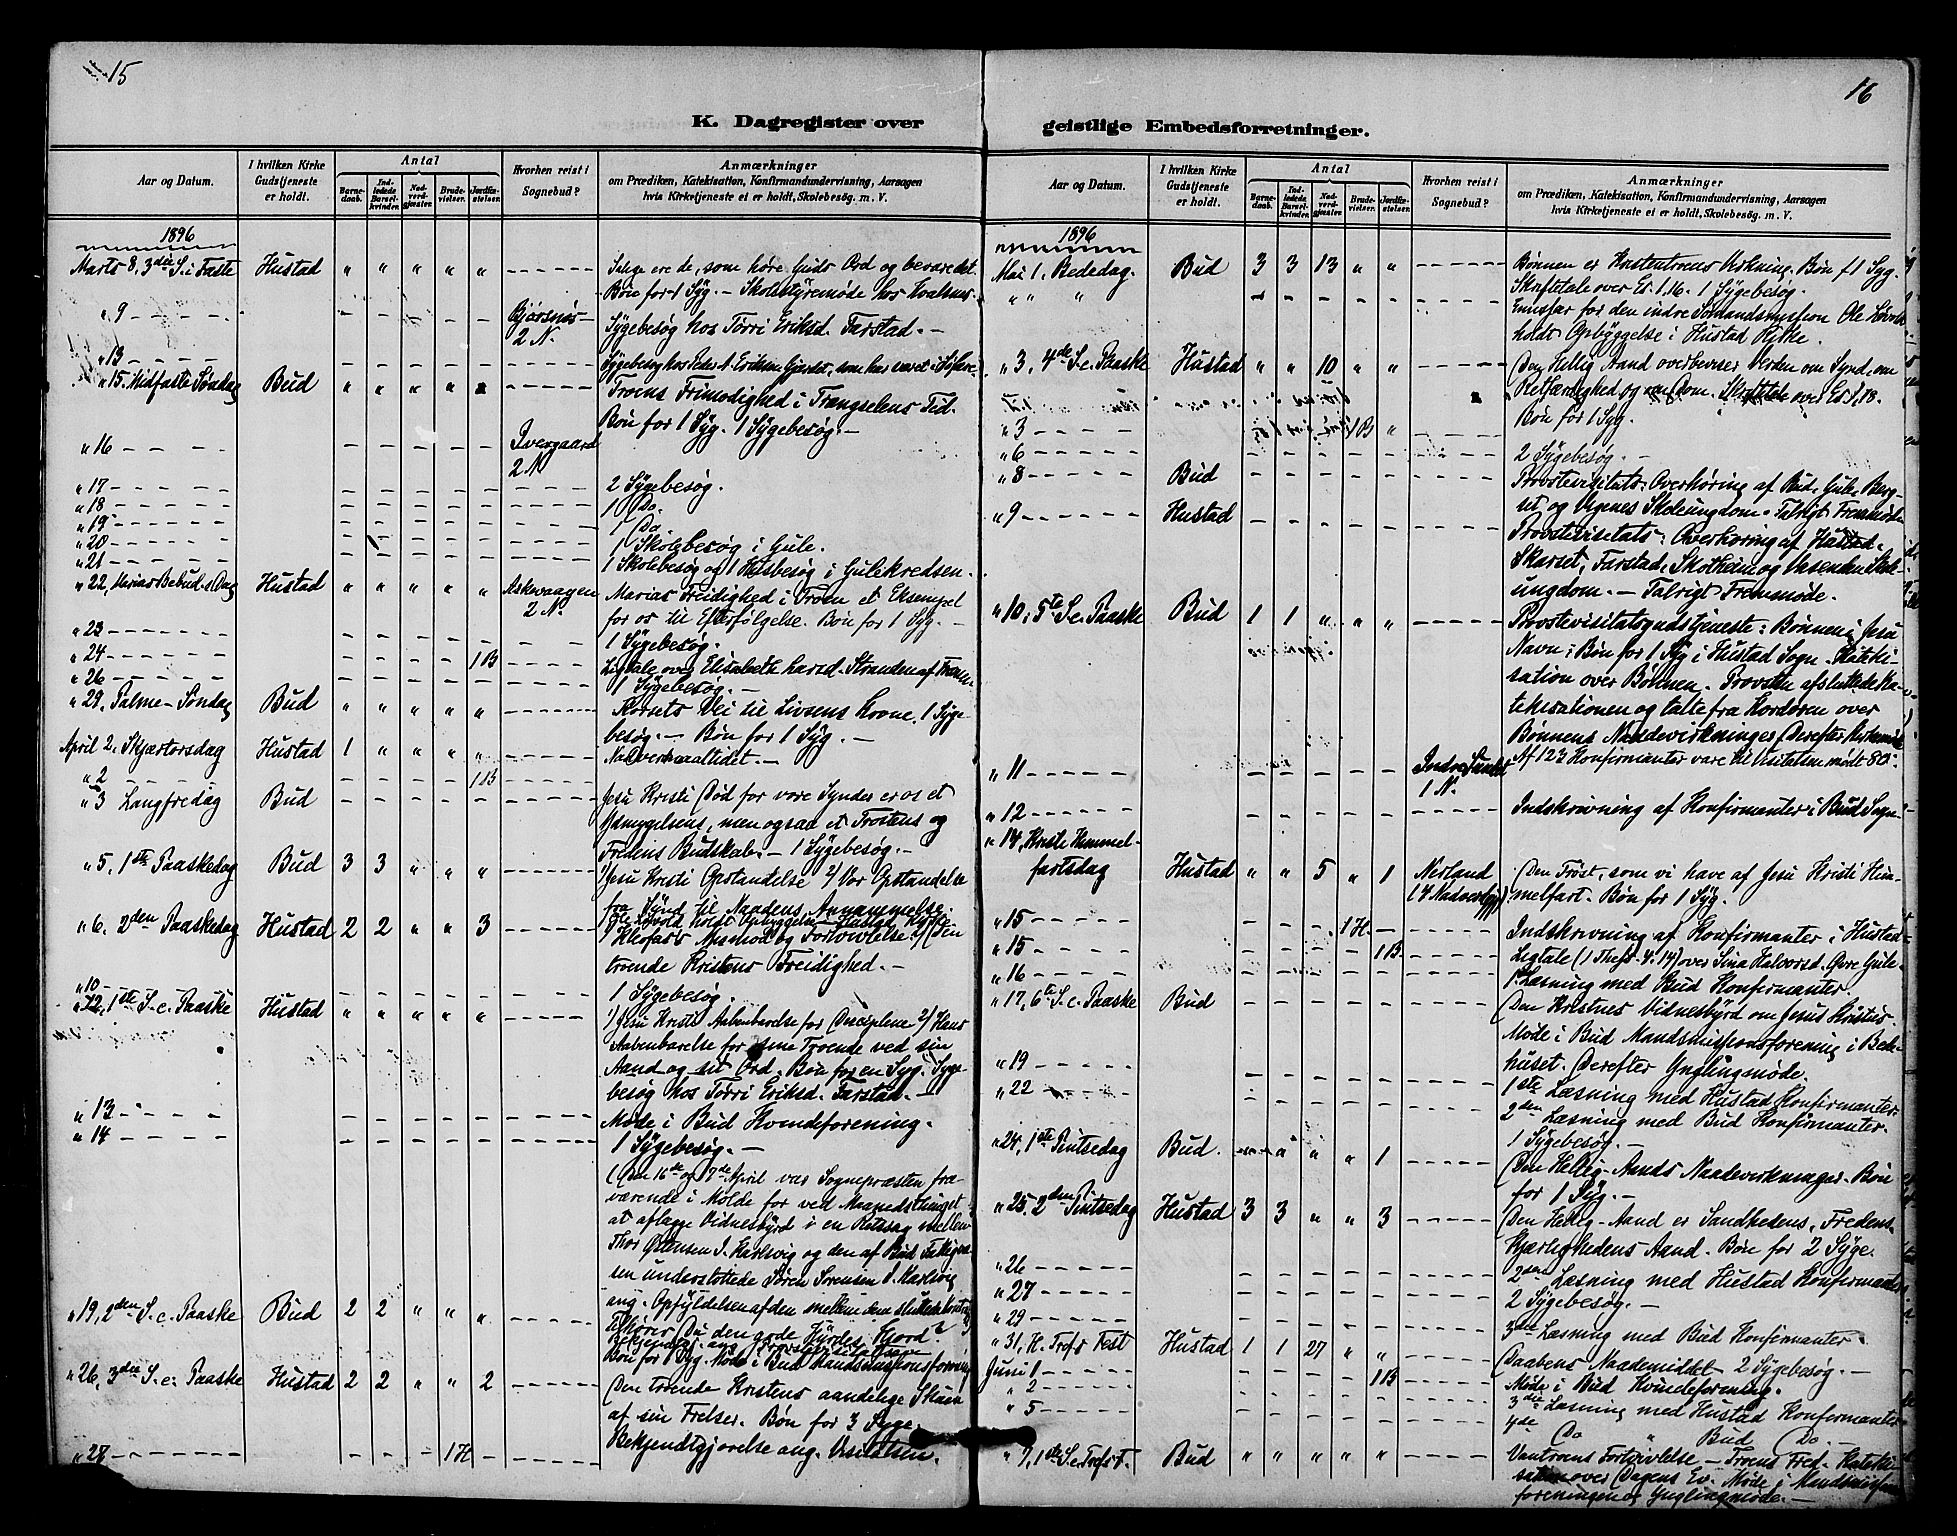 15
K. Dagregister over
Aar og Datum.
I hvilken Kirke Gudstjeneste er holdt.
Antal
Barnedaab.
Indledede Barselkvinder.
Nadverdgjester.
Brudevielser.
Jordfæstelser.
Hvorhen reist i Sognebud?
Anmærkninger
om Prædiken, Katekisation, Konfirmandundervisning, Aarsagen
hvis Kirketjeneste ei er holdt, Skolebesög. m. V.
1896
Marts 8, 3die S. i Faste Hustad " " " " " Salige ere de, som høre Guds Ord og bevare det.
Bøn for 1 Syg. – Skolestyremøde hos Hvalsnes.
" 9 Bjørsnøs 2 N. Sygebesøg hos Torri Eriksd. Farstad. –
" 13 Sygebesøg hos Peder A. Eriksen
" 15. Midfaste Søndag Bud " " " " " Troens Frimodighed i Trængselens Tid.
Bøn for 1 Syg. 1 Sygebesøg. –
" 16 Tvergaard 2 N
" 17 2 Sygebesøg.
" 18 1 Do.
" 19 1 Do.
" 20 1 Skolebesøg i Gule.
" 21 1 Skolebesøg og 1 Husbesøg i Gulekredsen.
" 22, Marias Bebud. Dag Hustad " " " " " Askevaagen 2 N. Marias Freidighed i Troen et Eksempel
for os til Efterfølgelse. Bøn for 1 Syg. –
" 23 1 Sygebesøg.
" 24 1 B Ligtale over Elisabeth Larsd. Stranden af
" 26 1 Sygebesøg. –
" 29, Palme-Søndag Bud " " " " " Korsets Vei til Livsens Krone. 1 Syge-
besøg. – Bøn for 1 Syg. –
April 2. Skjærtorsdag Hustad 1 " " " " Nadvermaaltidet. –
" 2 1 B
" 3 Langfredag Bud Jesu Kristi Død for vore Synder er os et
Ydmygelsens, men ogsaa et Trostens og
Fredens Budskab. – 1 Sygebesøg. –
" 5, 1ste Paaskedag Bud 3 3 " " " 1/ Jesu Kristi Opstandelse 2/ Vor Opstandelse
fra Synd til Naadens Annammelse.
Ole Løvold holdt Opbyggelse i Hustad Kirke
" 6, 2den Paaskedag Hustad 2 2 " " 3 1/ Kleofas's Mismod og Fortvivlelse 2/ Den
troende Kristens Freidighed. –
" 10 1 Sygebesøg.
" 12, 1ste S. e. Paaske Hustad " " " " " 1/ Jesu Kristi Aabenbarelse for Disciplene 2/ Hans
Aabenbarelse for sine Troende ved sin
Aand og sit Ord. Bøn for en Syg. Syge-
besøg hos Torri Eriksd. Farstad. –
" 13 Møde i Bud Kvindeforening.
" 14 1 Sygebesøg. –
(Den 16de og 17de April var Sognepræsten fra-
værende i Molde for ved Maanedsthinget
at aflægge Vidnesbyrd i en Retssag mellem
Thor Østensen I. Harlsvig og den af Bud Fattigvæ-
sen understøttede Søren Sorensen I. Harlsvig
ang. Opfyldelsen af den mellem dem sluttede
" 19, 2den S. e. Paaske Bud 2 2 " " " Du den gode Hyrdes Hjord?
Bøn for 1 Syg. Møde i Bud Mandsmissionsforening
" 26, 3die S. e. Paaske Hustad 2 2 " " 2 Den troende Kristens aandelige Skuen
af sin Frelser. Bøn for 3 Syge.
" 28 1 H Bekjendtgjørelse ang. Visitatsen.
16
geistlige Embedsforretninger.
Aar og Datum.
I hvilken Kirke Gudstjeneste er holdt.
Antal
Barnedaab.
Indledede Barselkvinder.
Nadverdgjæster.
Brudevielser.
Jordfæstelser.
Hvorhen reist i Sognebud?
Anmærkninger
om Prædiken, Katekisation, Konfirmandundervisning, Aarsagen
hvis Kirketjeneste ei er holdt, Skolebesøg. m. V.
1896
Mai 1. Bededag. Bud 3 3 13 " " Bønnen er Kristentroens Virkning. Bøn f. 1 Syg.
" " " Skriftetale over Es. 1.16. 1 Sygebesøg.
Emissær for den indre Sømandsmission Ole Løvold
holdt Opbyggelse i Hustad Kirke.
" 3, 4de S. e. Paaske Hustad " " 10 " " Den Hellig Aand overbeviser Verden om Synd, om
Retfærdighed og om Dom. Skriftetale over Es. 1,18.
" 3 1 B " Bøn for 1 Syg.
" 6 2 Sygebesøg. –
" 8 Bud Provstevisitats: Overhøring af Bud, Gule, Berg-
set og Vegenes Skoleungdom. Talrigt Fremmøde.
" 9 Hustad Provstevisitats: Overhøring af Hustad,
Skarset, Farstad, Skotheim og Vasenden Skole-
ungdom. – Talrigt Fremmøde.
" 10, 5te S. e. Paaske Bud 1 1 " " " Provstevisitatsgudstjeneste: Bønnen i Jesu
Navn: Bøn for 1 Syg i Hustad Sogn. Kateki-
sation over Bønnen. Provsten afsluttede Ka-
tekisationen og talte fra Kordøren over
Bønnens Naadevirkninger. Derefter
" 11 Indre 1 N. Af 123 Konfirmanter vare til Visitatsen mødt 80.
" 12 Indskrivning af Konfirmanter i Bud Sogn.
" 14, Kristi Himmel-
fartsdag Hustad " " 5 " 1 Nerland Den Trøst, som vi have af Jesu Kristi Him-
melfart. Bøn for 1 Syg.
" 15 1 H. Indskrivning af Konfirmanter i Hustad
" 15 1 B Ligtale (1 Thess. 4. 14) over Sina Halvorsd. Øvre Gule.
" 16 1ste Læsning med Bud Konfirmanter.
" 17, 6te S. e. Paaske Bud Den Kristnes Vidnesbyrd om Jesus Kristus.
Møde i Bud Mandsmissionsforening i Bede-
huset. Derefter Ynglingmøde.
" 19 1ste Læsning med Hustad Konfirmanter.
" 22 2den Læsning med Bud Konfirmanter.
1 Sygebesøg. –
" 24, 1ste Pintsedag Bud. " " " 1 Den Hellig-Aands Naadevirkninger. Bøn
for 1 Syg. –
" 25. 2den Pintsedag Hustad 3 3 " " 3 Den Hellig-Aand er Sandhedens, Fredens,
Kjærlighedens Aand. Bøn for 2 Syge.
" 26 2den Læsning med Hustad Konfirmanter
" 27 2 Sygebesøg. –
" 29 3die Læsning med Bud Konfirmanter
" 31, H. Trefs Fest Hustad 1 1 27 " " Daabens Naademiddel – 2 Sygebesøg. –
Juni 1 1 B
" 2 Møde i Bud Kvindeforening.
" 5 3die Læsning med Hustad Konfirmanter
4de Do " Bud Do. –
" 7, 1ste S. e. Tref. F. Bud " " " " " Vantroens Fortvivlelse – Troens Fred. Kateki-
sation over Dagens Ev. Møde i Mandsmissions-
foreningen og Ynglingmøde. –